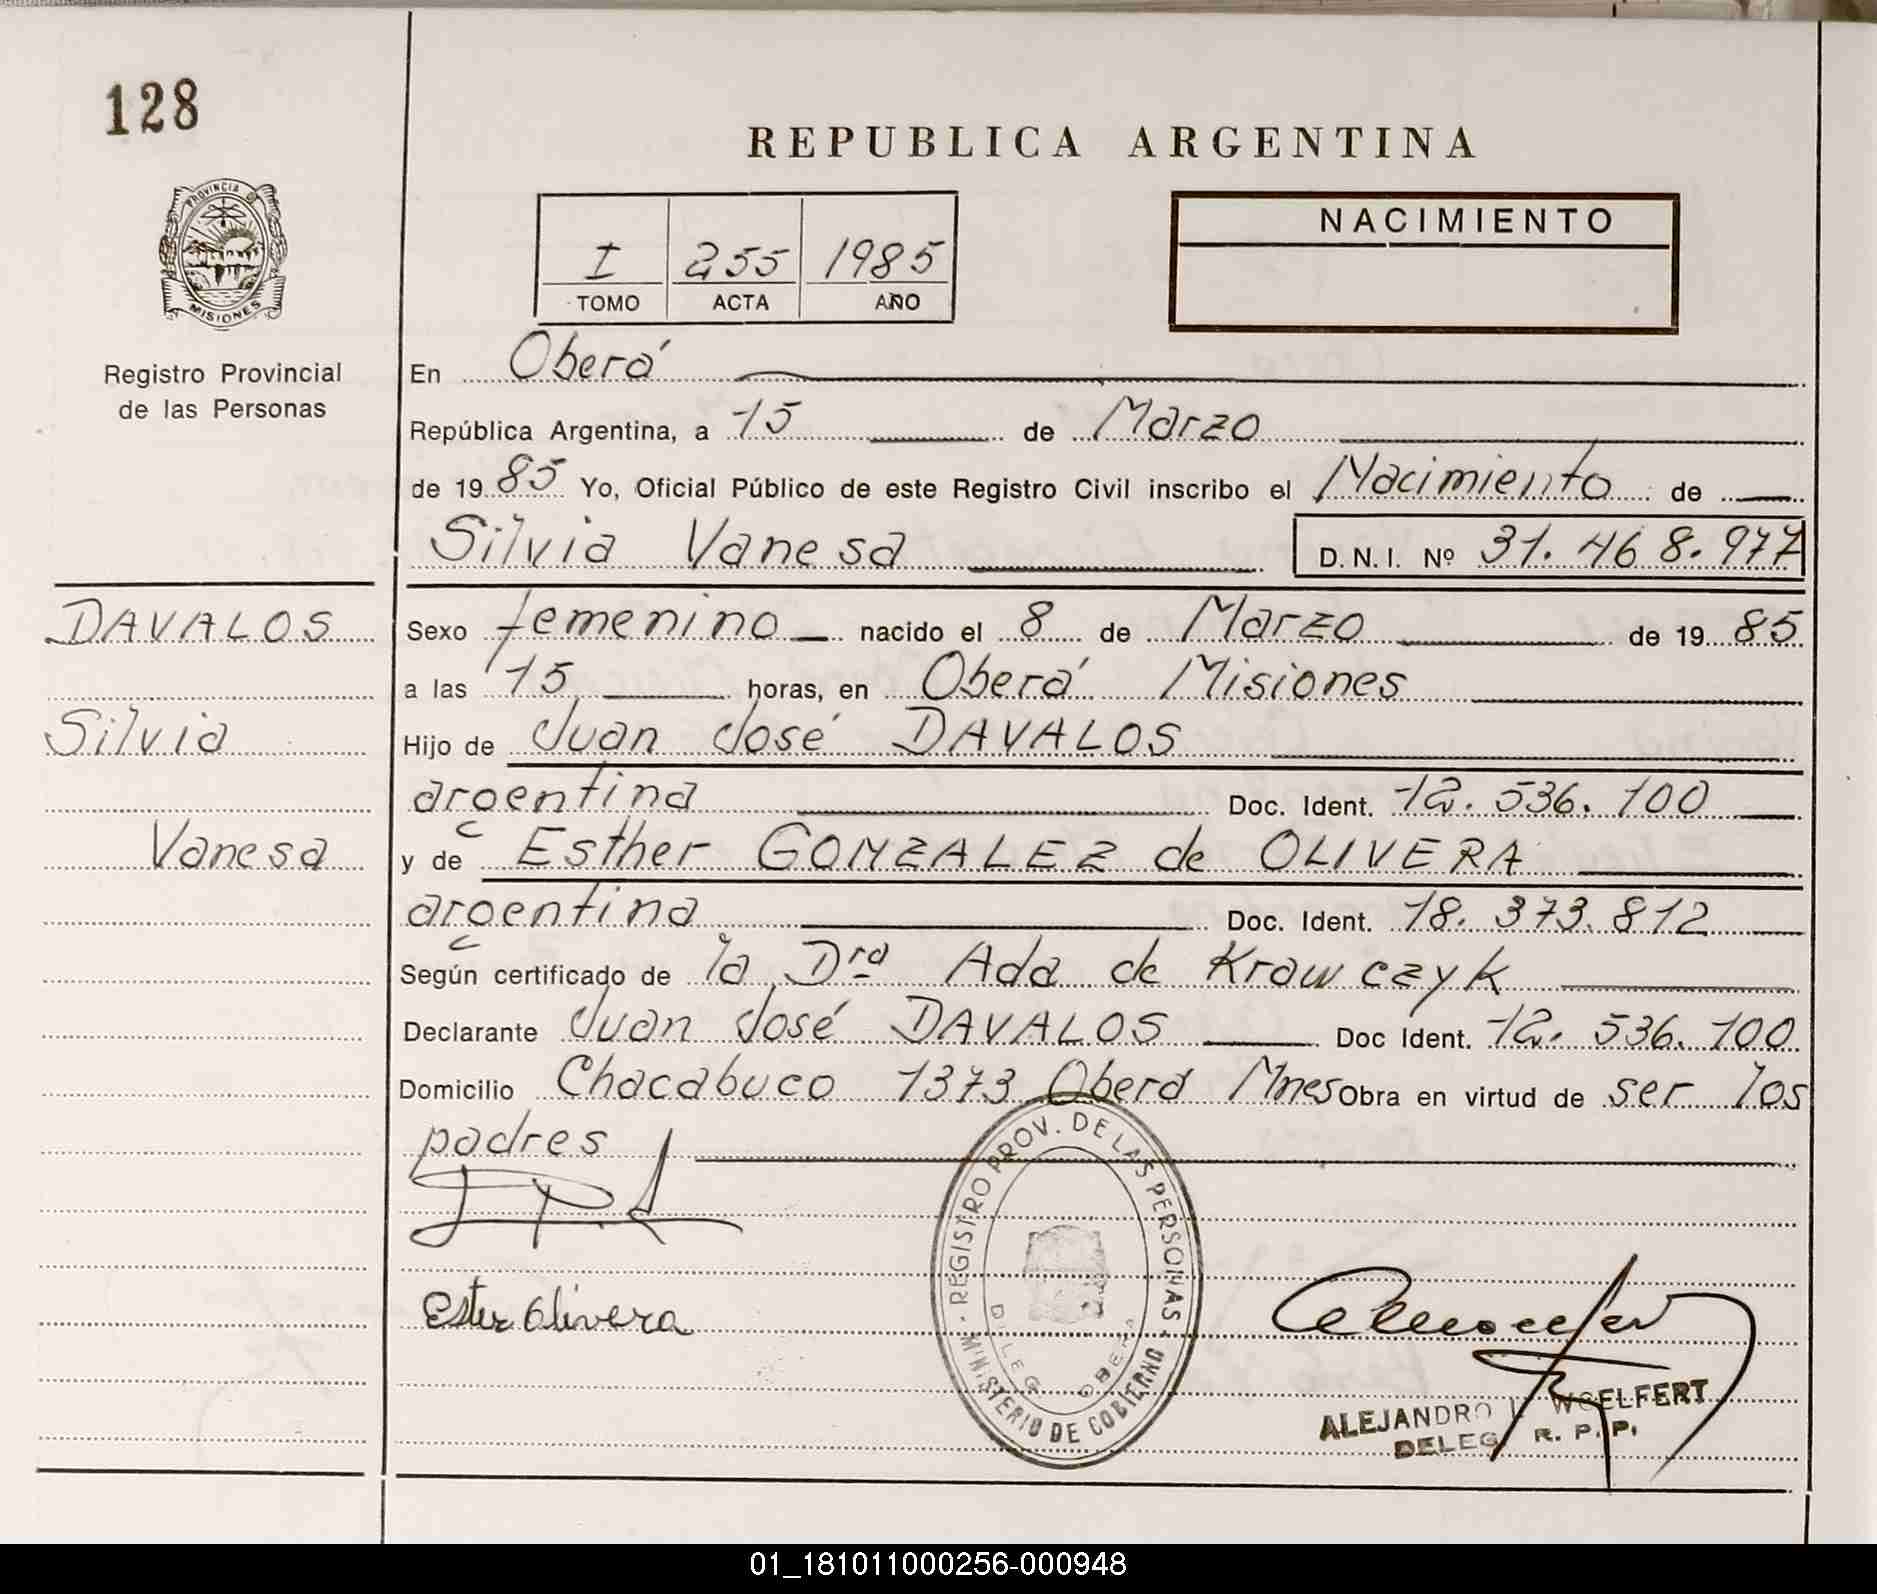 128
REPUBLICA ARGENTINA
PROVINCIA DE
MISIONES
Registro Provincial
de las Personas
I 255 1985
TOMO ACTA AÑO
NACIMIENTO
En Oberá
República Argentina, a 15 de Marzo
de 1985 Yo, Oficial Público de este Registro Civil inscribo el Nacimiento de
Silvia Vanesa D.N.I. Nº 31.468.977
DAVALOS
Silvia
Vanesa
Sexo femenino nacido el 8 de Marzo de 1985
a las 15 horas, en Oberá Misiones
Hijo de Juan José DAVALOS
argentina Doc. Ident. 12.536.100
y de Esther GONZALEZ de OLIVERA
argentina Doc. Ident. 18.373.812
Según certificado de la Dra Ada de Krawczyk
Declarante Juan José DAVALOS Doc Ident. 12.536.100
Domicilio Chacabuco 1373 Oberá Mnes Obra en virtud de ser los
padres
REGISTRO PROV. DE LAS PERSONAS
MINISTERIO DE GOBIERNO
DELEG OBERA
Ester Olivera
ALEJANDRO WOELFERT
DELEG R. P. P.
01_181011000256-000948